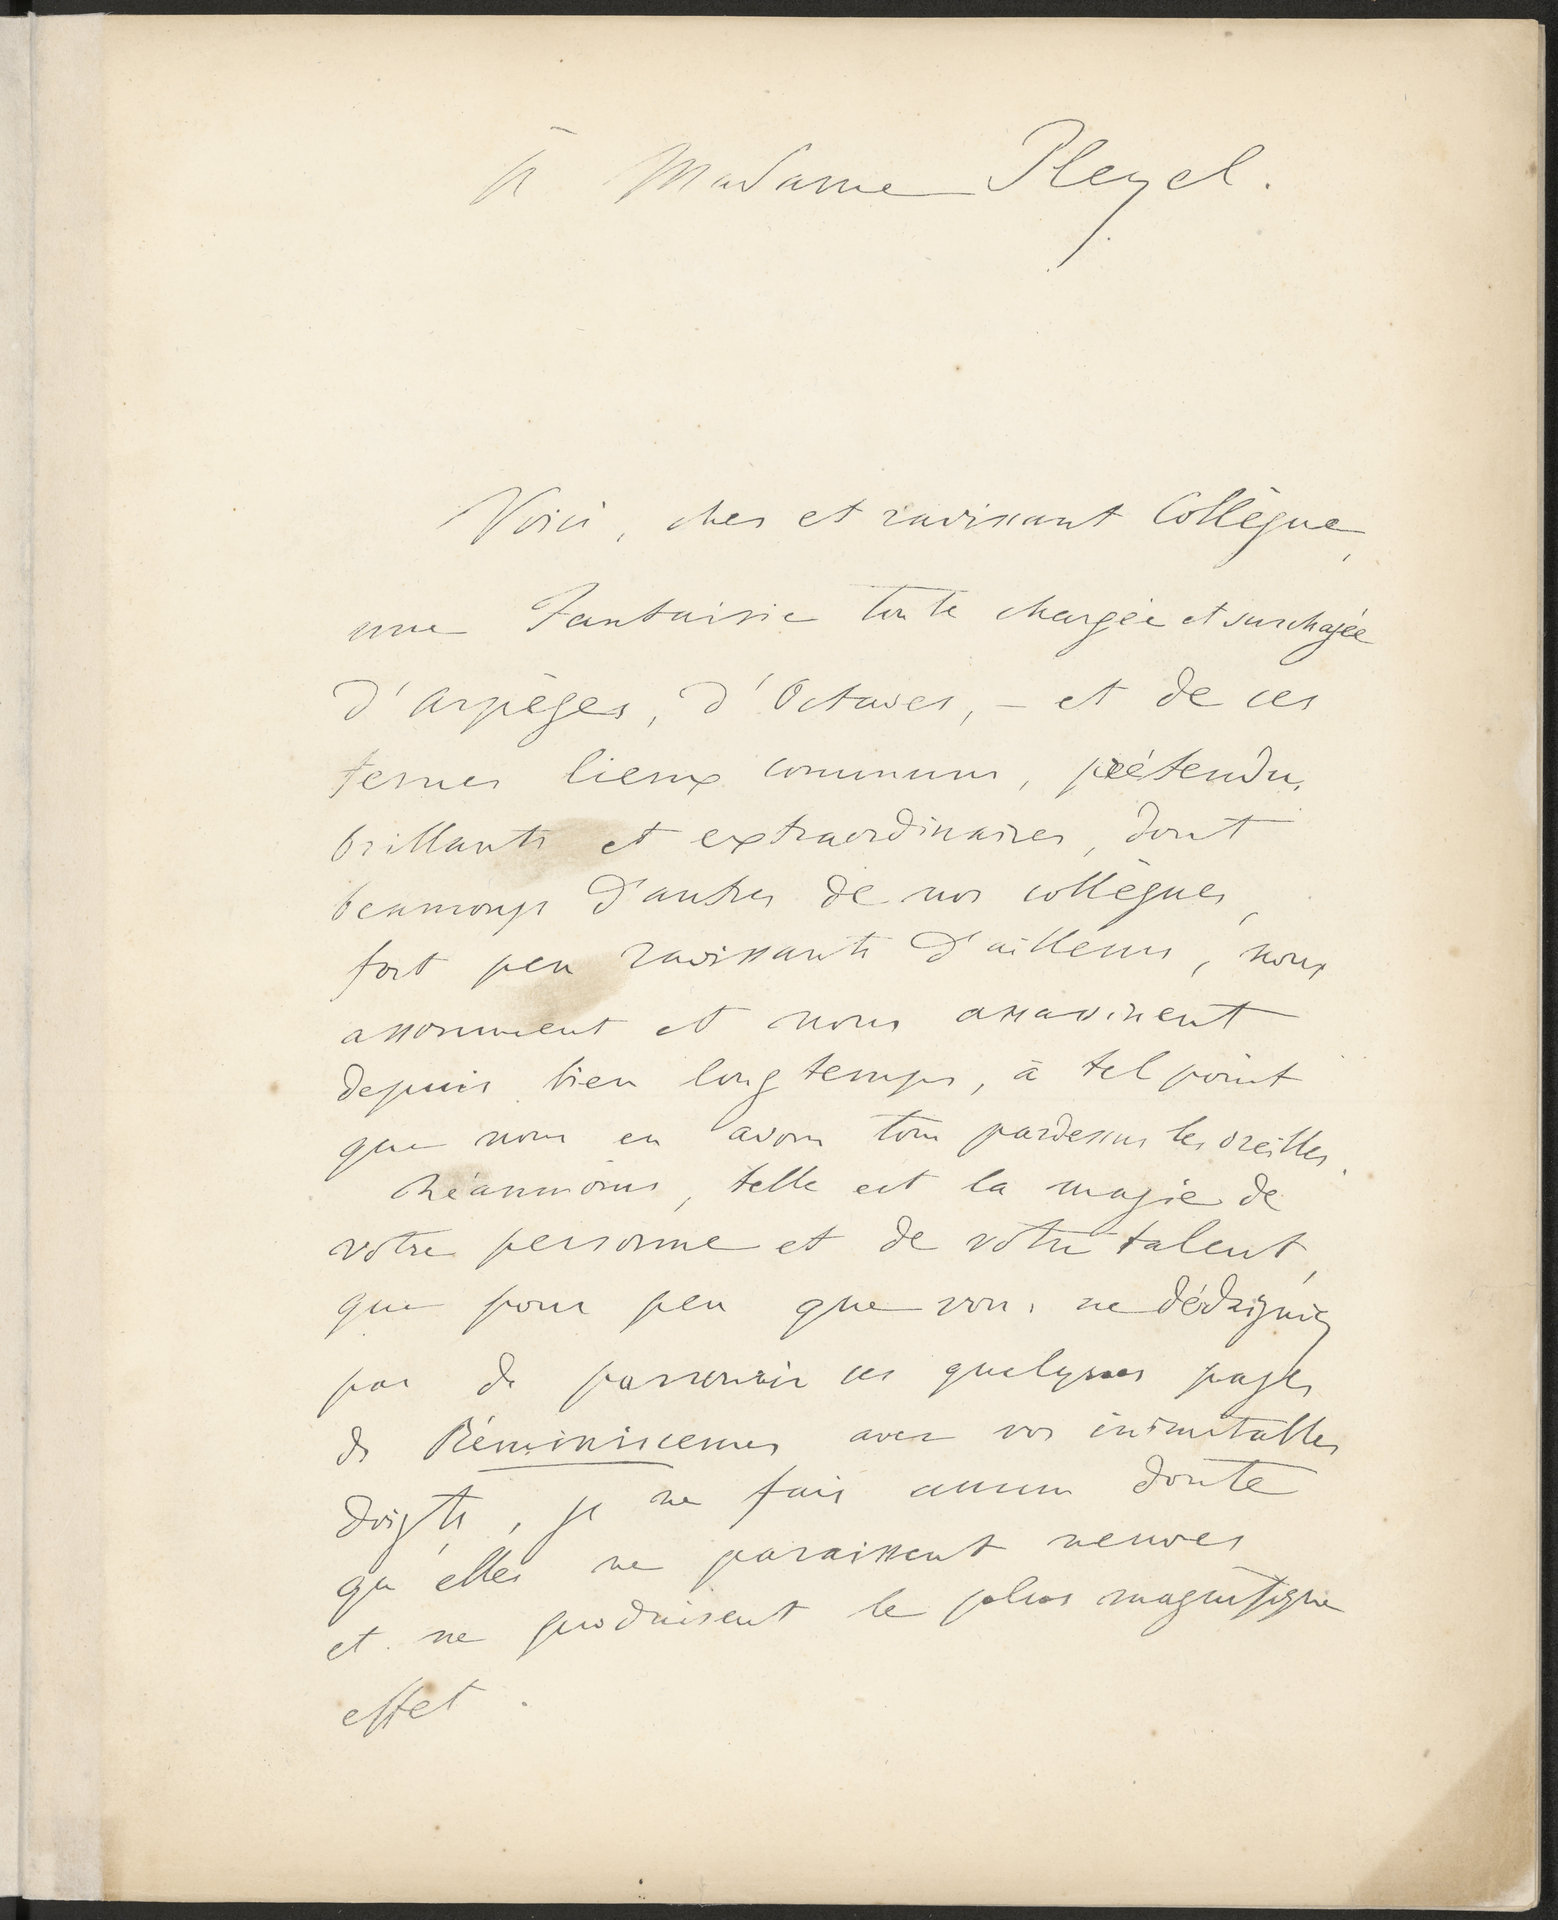 à Madame Pleyel.
Voici, cher et ravissant Collègue,
une Fantaisie toute chargée et surchagée
d'Arpèges, d'Octaves, – et de ces
ternes lieux communs, prétendus
brillants et extraordinaires, dont
beaucoup d'autres de nos collègues,
fort peu ravissants d'ailleurs, nous
assomment et nous assavinent
depuis bien longtemps, à tel point
que nous en avons tous pardessus les oreilles.
Néanmoins, telle est la magie de
votre personne et de votre talent,
que pour peu que vous ne dédaigniez
pas de parcourir ces quelques pages
de Réminiscences avec vos inimitables
doigts, je ne fais aucun doute
qu'elles ne paraissent neuves
et ne produisent le plus magnifique
effet.